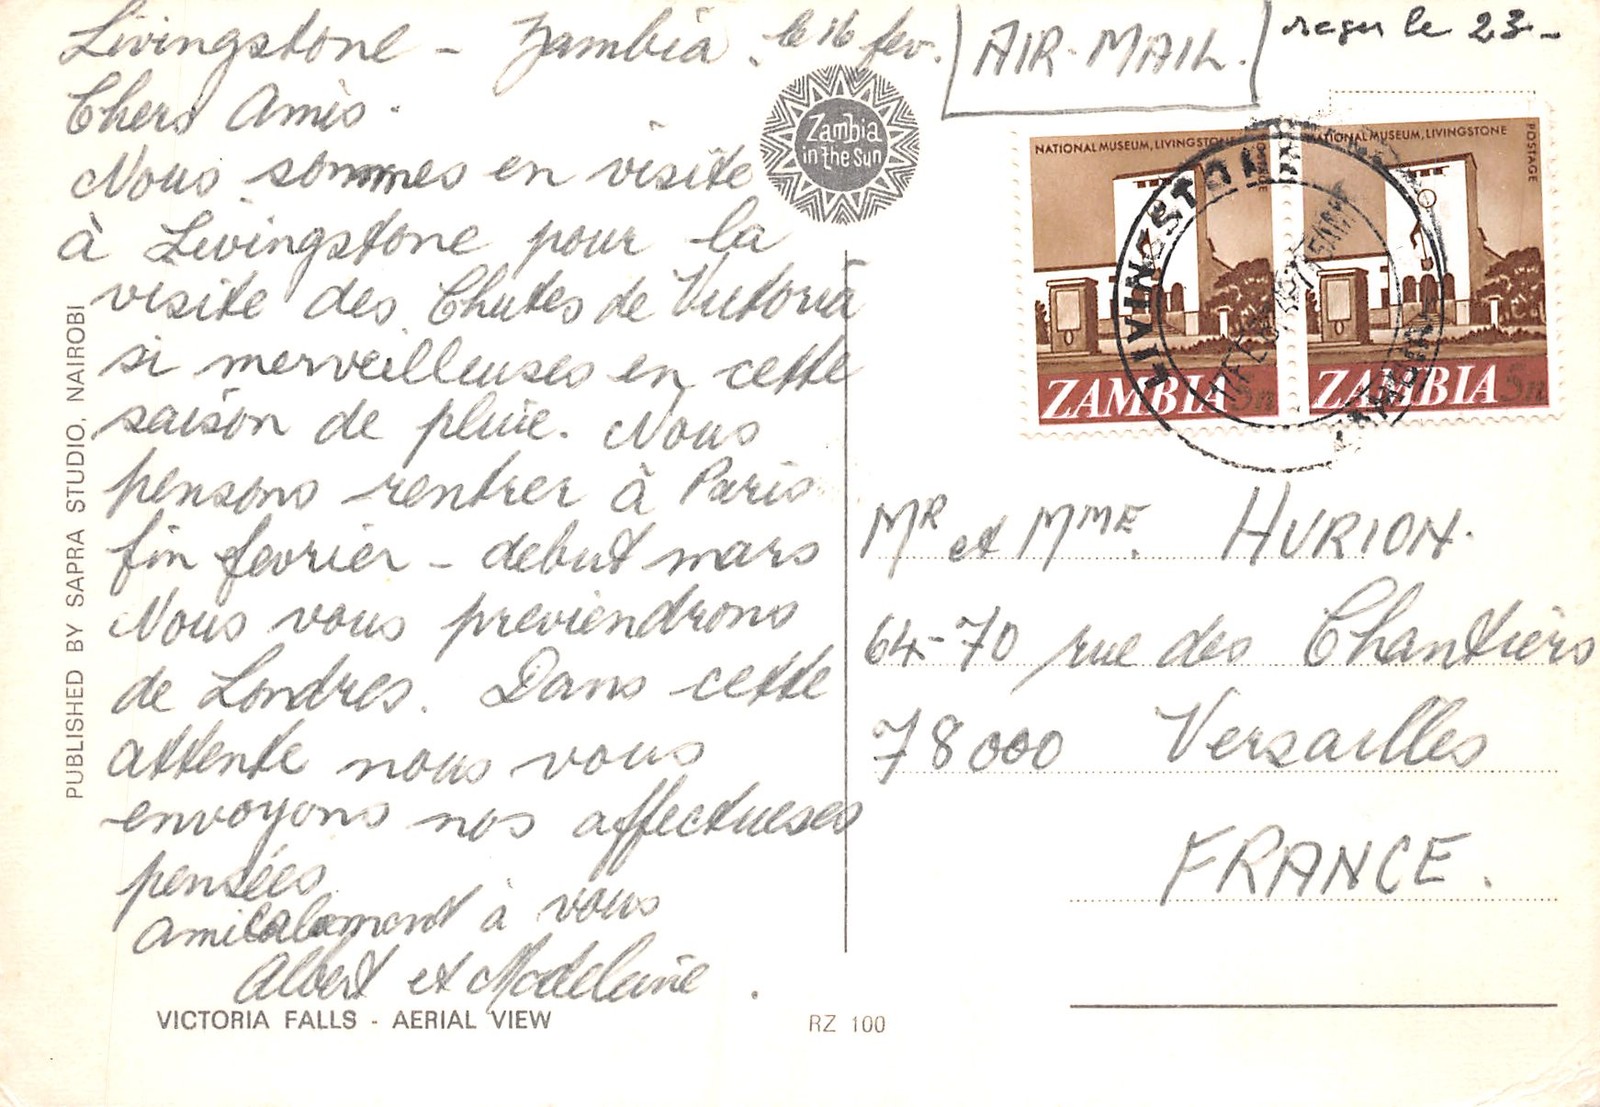 Livingstone - Zambia, le 16 fev.
AIR-MAIL.
reçu le 23-
Chers Amis.
Nous sommes en visite
à Livingstone pour la
visite des Chutes de Victoria
si merveilleuses en cette
saison de pluie. Nous
pensons rentrer à Paris
fin fevrier - debut mars
Nous vous previendrons
de Londres. Dans cette
attente nous vous
envoyons nos affectueses
pensées
amicalement à vous
Albert et Madeleine.
VICTORIA FALLS - AERIAL VIEW
RZ 100
PUBLISHED BY SAPRA STUDIO, NAIROBI
Zambia
in the Sun
NATIONAL MUSEUM, LIVINGSTONE
POSTAGE
ZAMBIA 5n
NATIONAL MUSEUM, LIVINGSTONE
POSTAGE
ZAMBIA 5n
LIVINGSTONE
ZAMBIA
Mr et Mme. HURION.
64-70 rue des Chantiers
78000 Versailles
FRANCE.